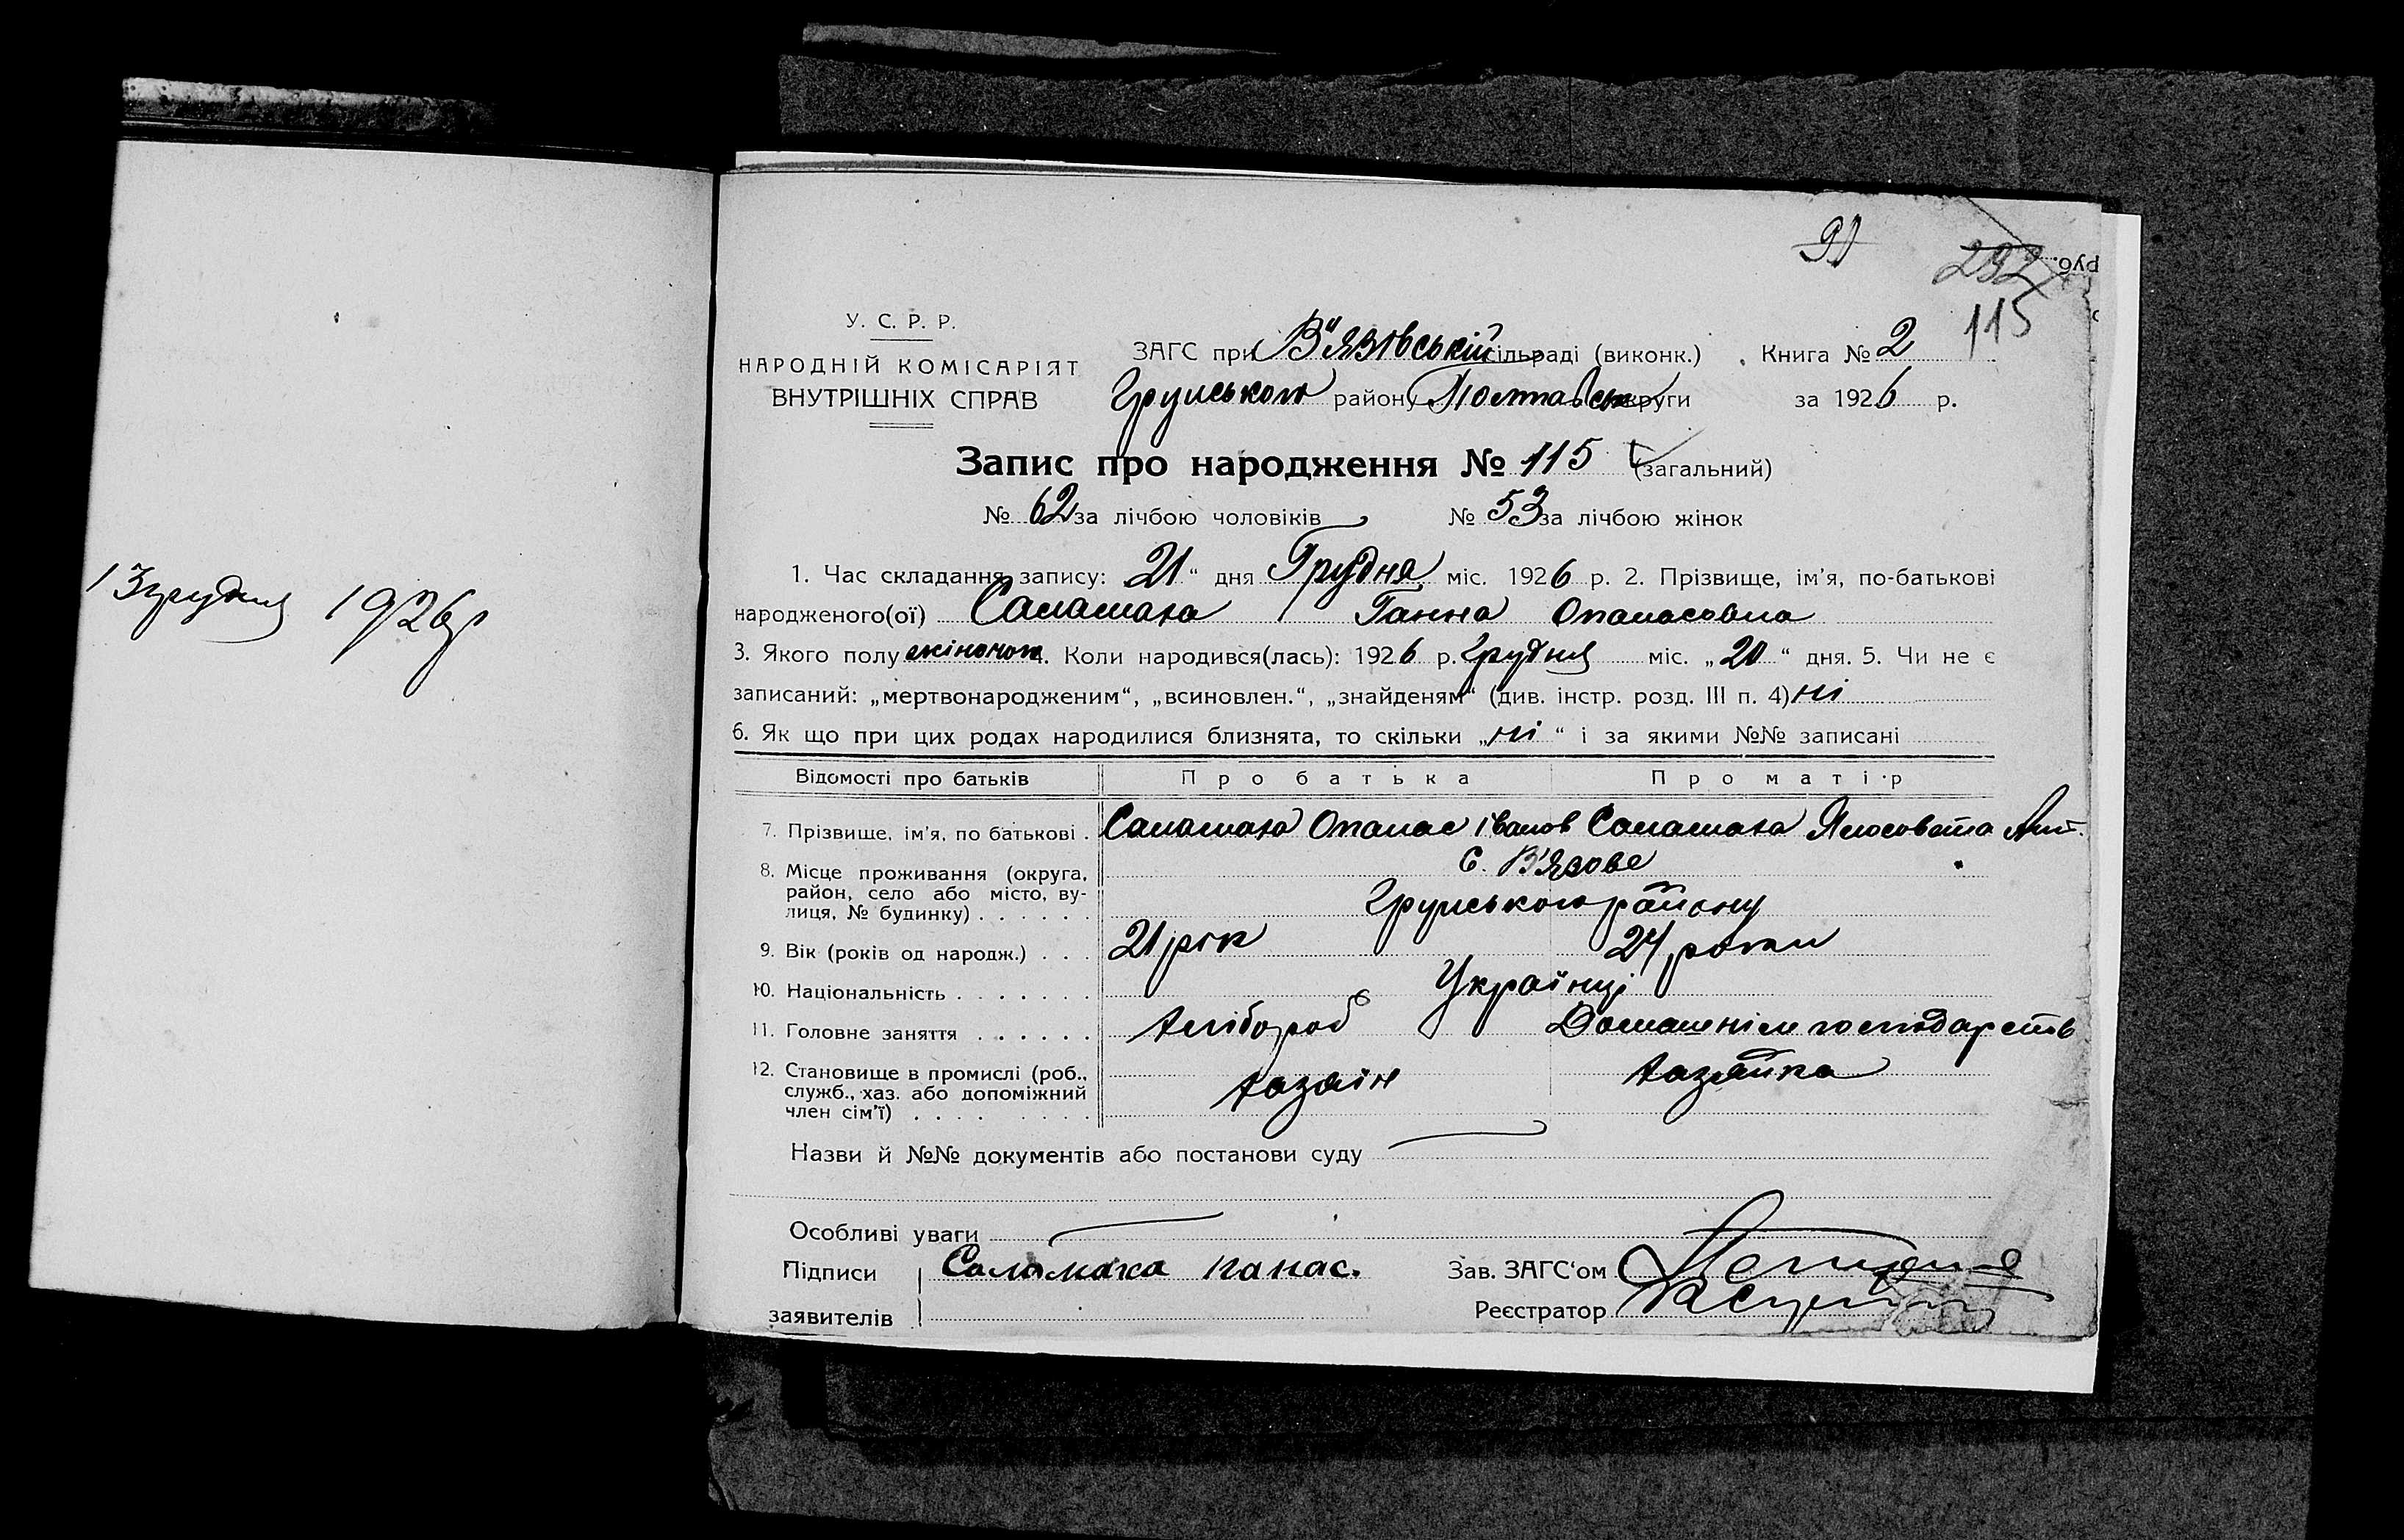 13 грудня 1926 р
91
292
руб.
115
У. С. Р. Р.
НАРОДНІЙ КОМІСАРІЯТ
ВНУТРІШНІХ СПРАВ
ЗАГС при В'язівській сільраді (виконк.) Книга № 2
Грунського району Полтавськ округи за 1926 р.
Запис про народження № 115 (загальний)
№ 62 за лічбою чоловіків № 53 за лічбою жінок
1. Час складання запису: 21 “ дня Грудня міс. 1926 р. 2. Прізвище, ім'я, по-батькові
народженого(ої) Саламаха Ганна Опанасовна
3. Якого полу жіночого. Коли народився(лась): 1926 р. грудня міс. „20“ дня. 5. Чи не є
записаний: „мертвонародженим“, „всиновлен.“, „знайденям“ (див. інстр. розд. III п. 4) ні
6. Як що при цих родах народилися близнята, то скільки „ні“ і за якими №№ записані
Відомості про батьків Про батька Про матір
7. Прізвище, ім'я, по батькові . Саламаха Опанас Іванов Саламаха Ялосовета Ант.
8. Місце проживання (округа, район, село або місто, вулиця, № будинку) . . . . . . С. В'язове
Грунського району
9. Вік (років од народж.) . . . 21 рік 24 роки
10. Національність . . . . . . . Українці
11. Головне заняття . . . . . . Хлібороб Домашнім господарств
12. Становище в промислі (роб., служб., хаз. або допоміжний член сім'ї) . . . . . . . . . хазяїн хазяйка
Назви й №№ документів або постанови суду
Особливі уваги
Підписи Саламаха панас. Зав. ЗАГС‘ом
заявителів Реєстратор